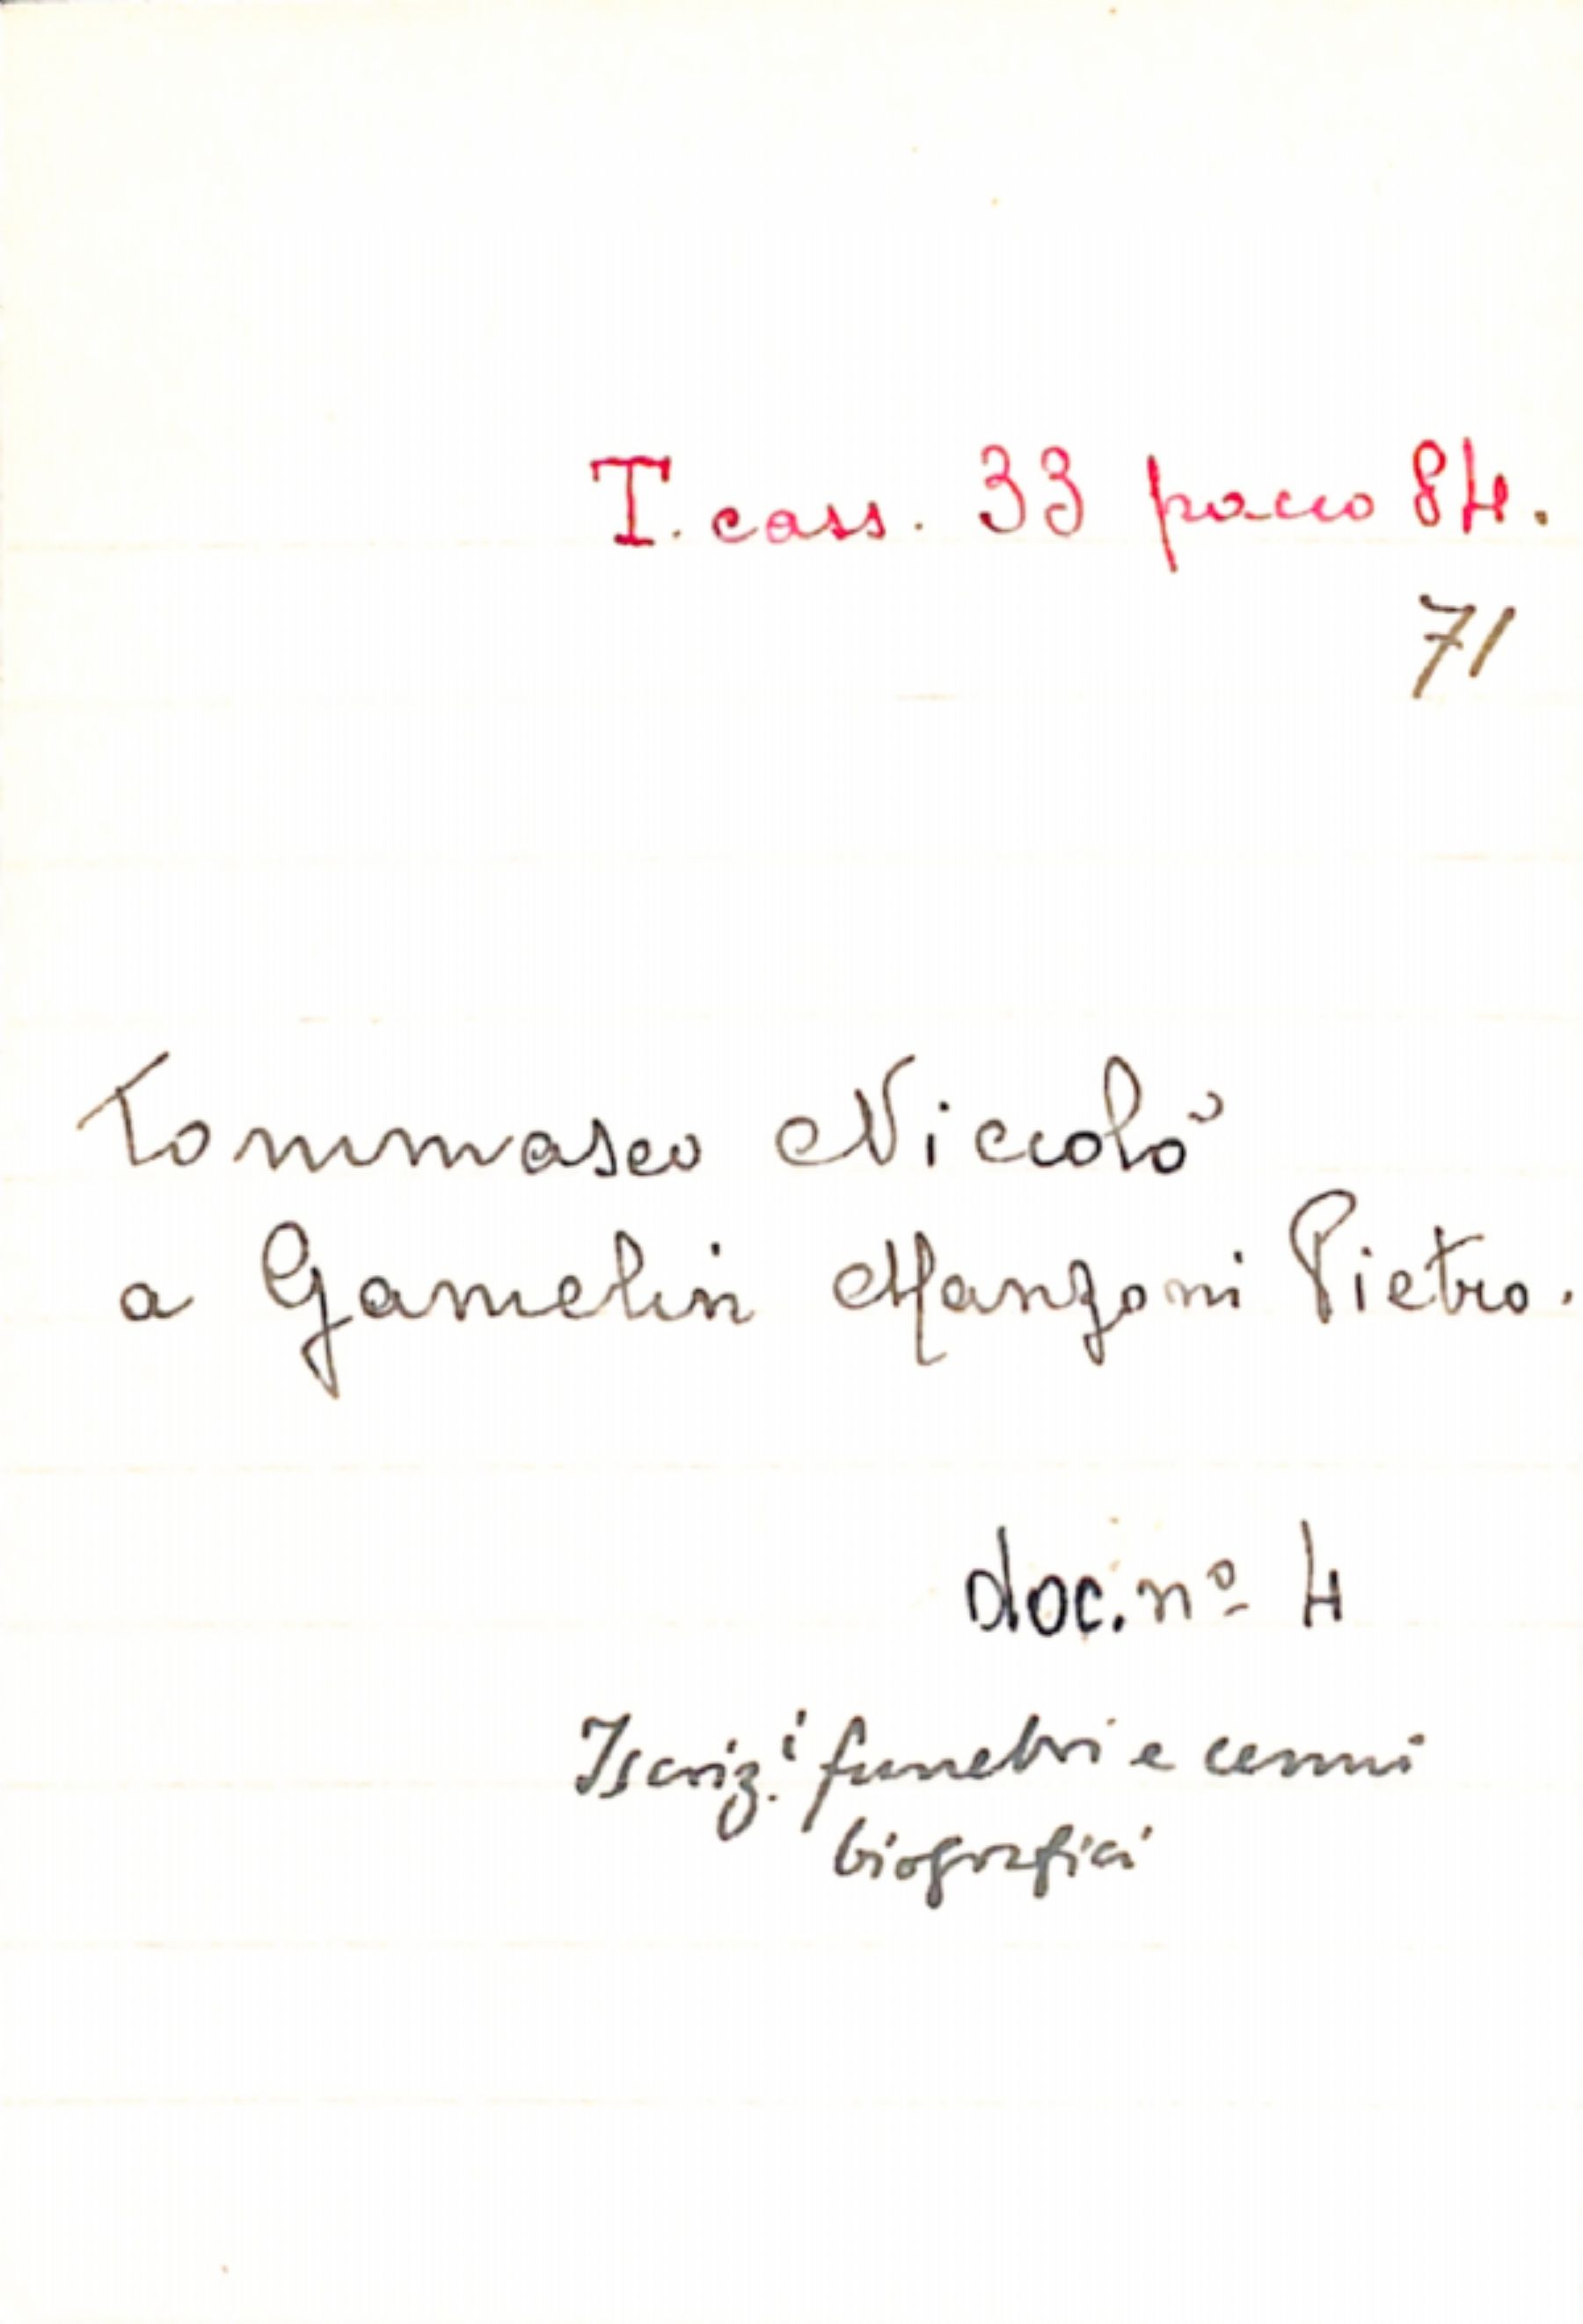 T. cass. 33 pacco 84.
71
Tommaseo Niccolò
a Gamelin Manzoni Pietro.
doc. nº 4
Iscriz.i funebri e cenni
biografici